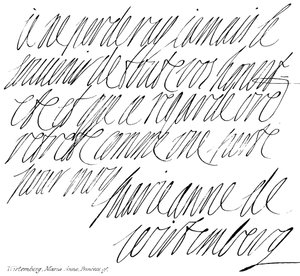 ie ne perderay iamais le
souvenir de toute vos honnet
et ie regarde vre
retraite comme une perte
pour moy
marie anne de
wirtemberg
Wirtemburg, Maria Anna, Princess of.